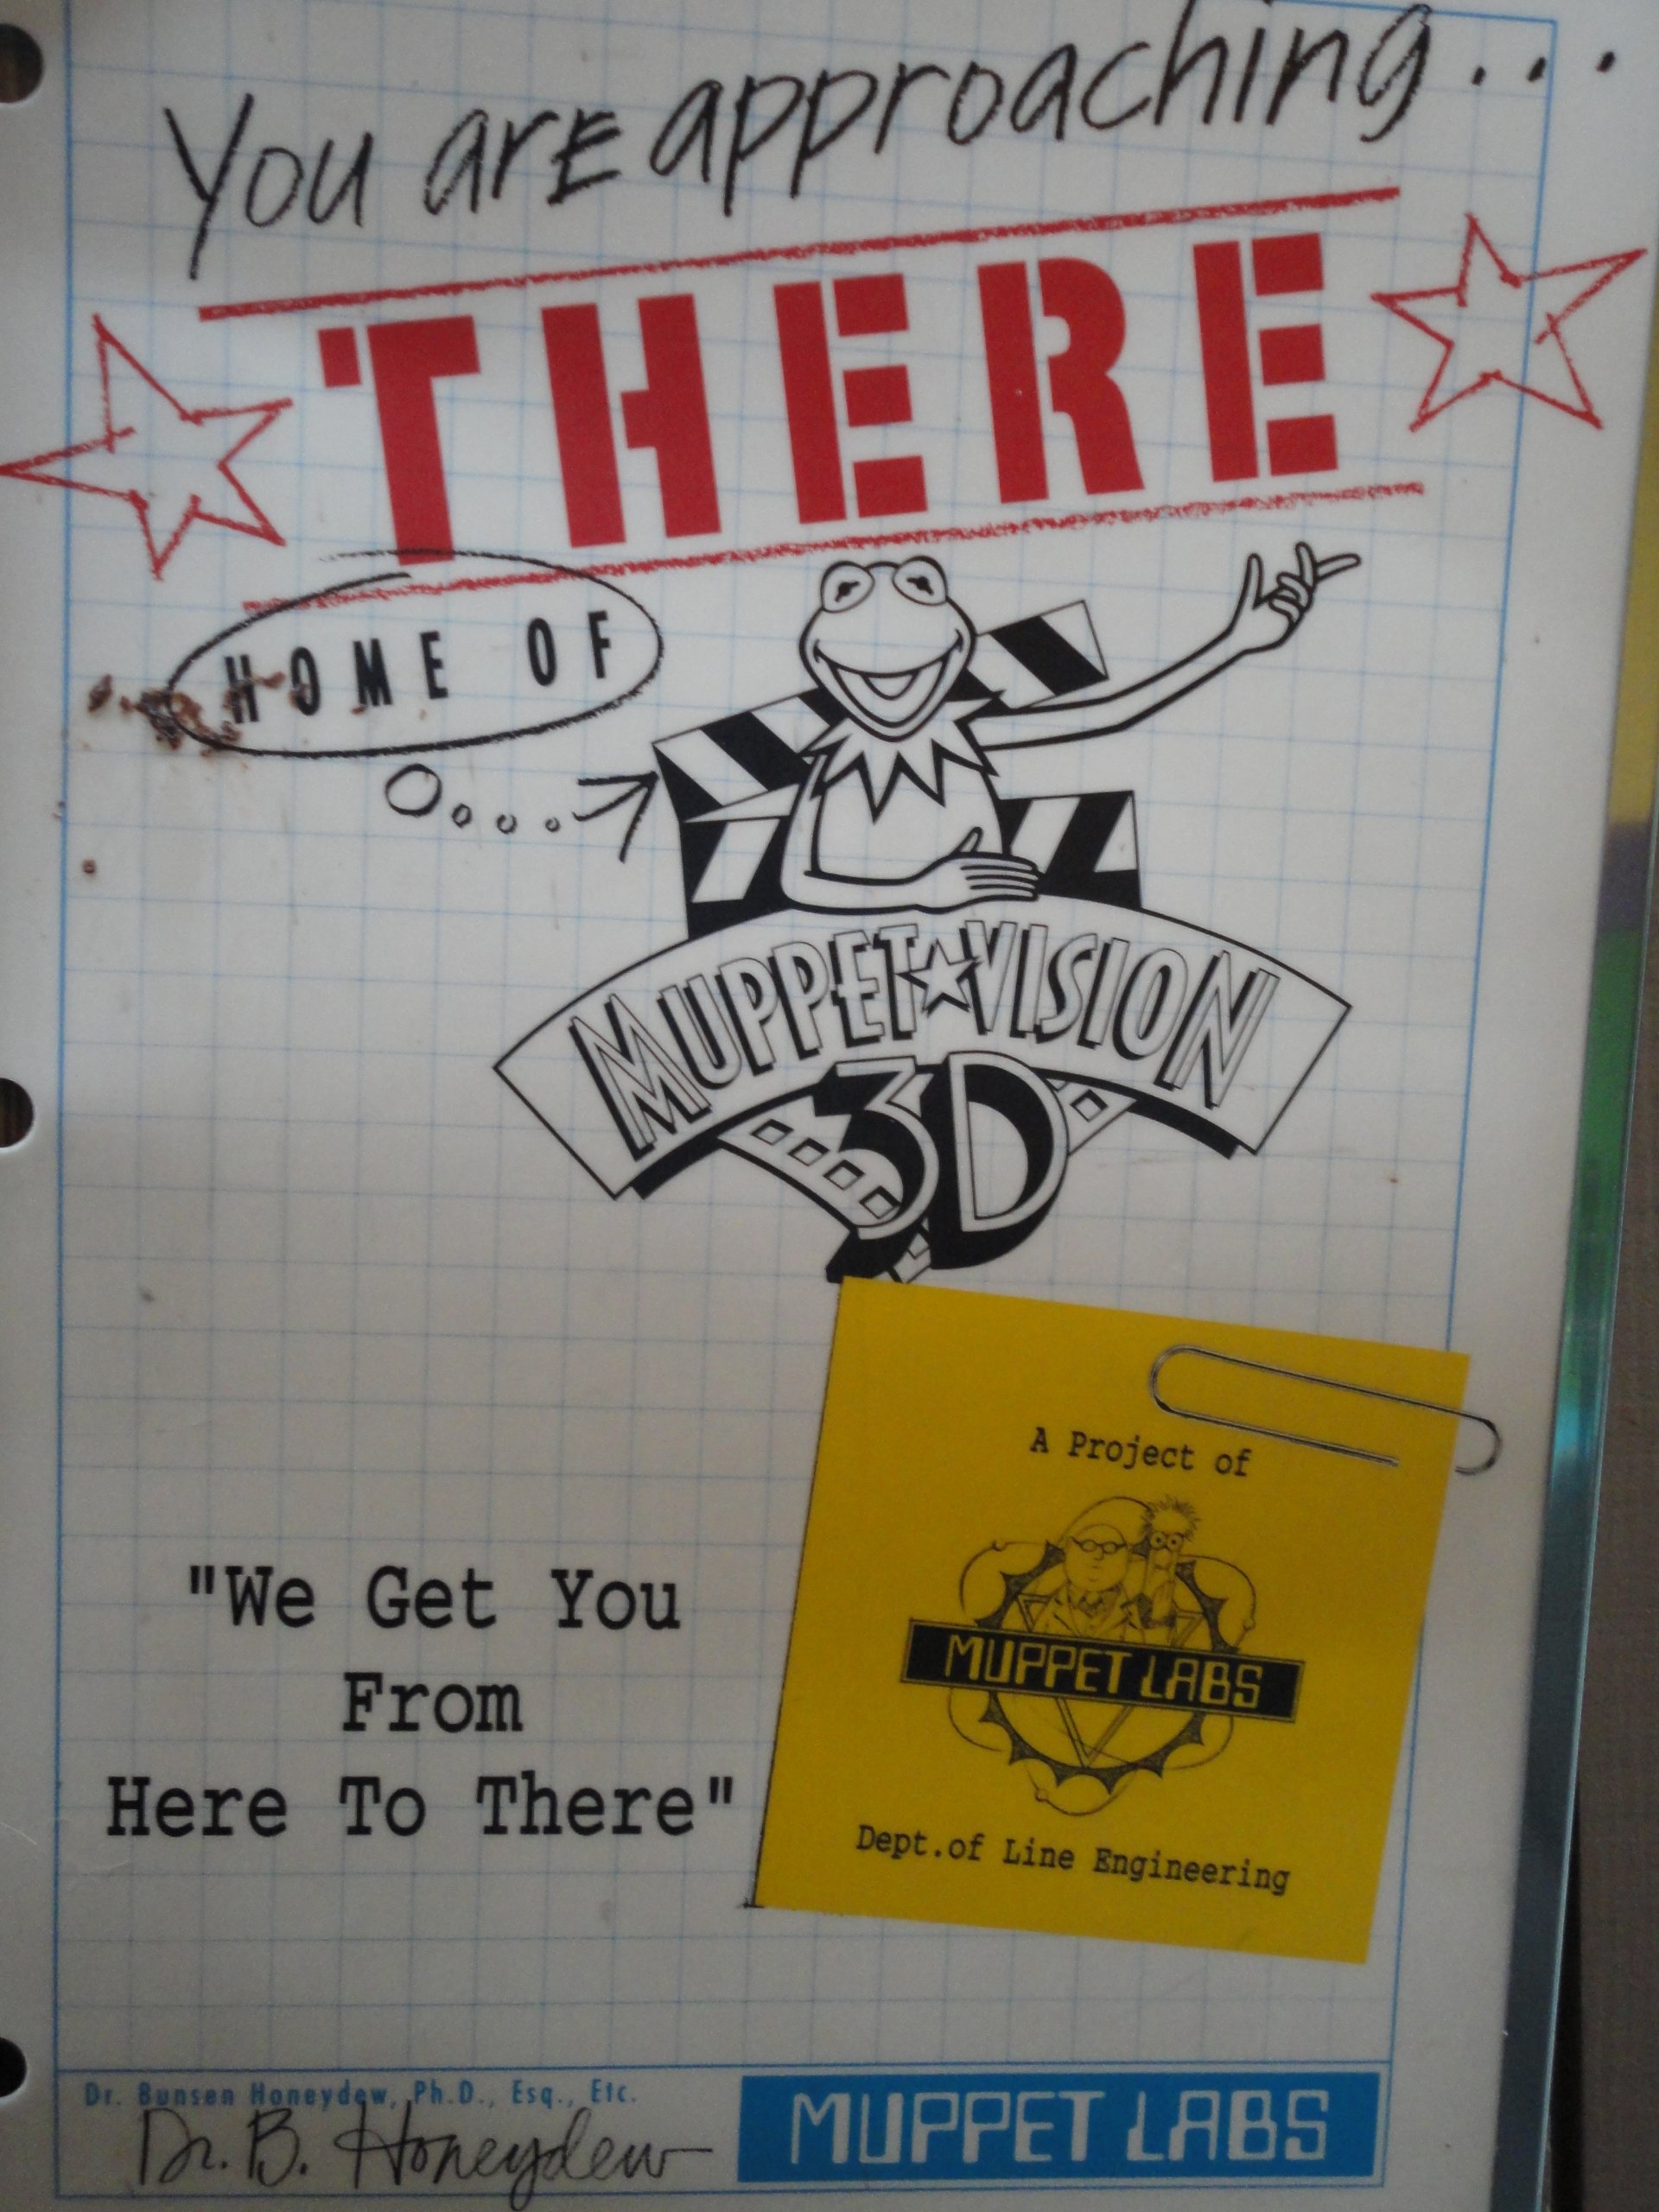 You are approaching...
THERE
HOME OF
MUPPET★VISION
3D
A Project of
MUPPET LABS
Dept.of Line Engineering
"We Get You
From
Here To There"
Dr. Bunsen Honeydew, Ph.D., Esq., Etc.
Dr. B. Honeydew
MUPPET LABS